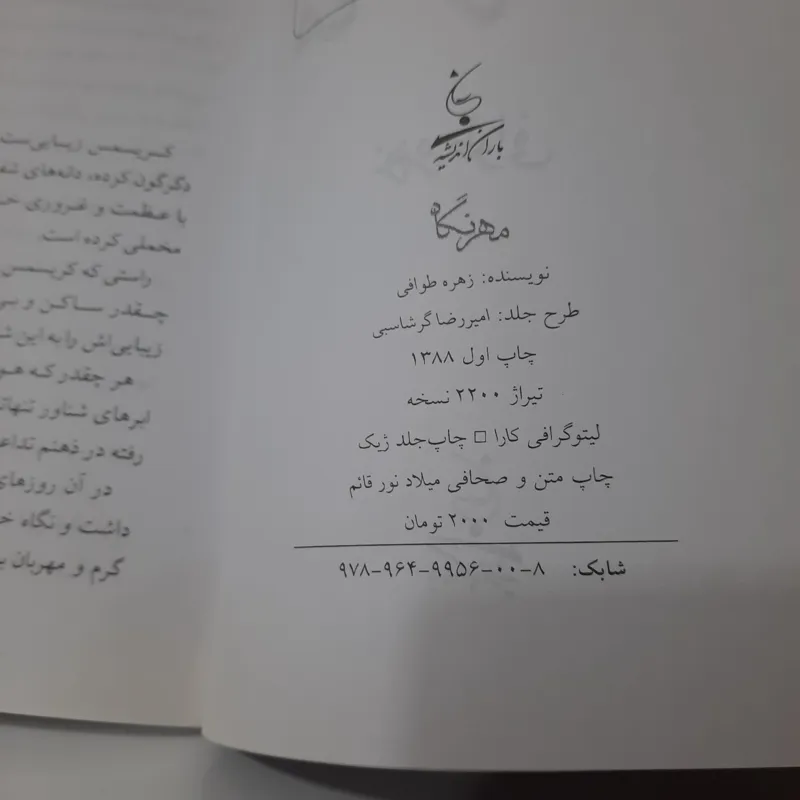 باران اندیشه
مهر نگاه
نویسنده: زهره طوافی
طرح جلد: امیررضا گرشاسبی
چاپ اول ۱۳۸۸
تیراژ ۲۲۰۰ نسخه
لیتوگرافی کارا □ چاپ‌جلد ژیک
چاپ متن و صحافی میلاد نور قائم
قیمت ۲۰۰۰ تومان
شابک: ۹۷۸-۹۶۴-۹۹۵۶-۰۰-۸
کریسمس زیبایی‌ست
دگرگون کرده، دانه‌های
با عظمت و غروری
مخملی کرده است.
راستی که کریسمس
چقدر ساکن و
زیبایی‌اش را به این
هر چقدر که
ابرهای شناور
رفته در ذهنم
در آن روزهای
داشت و نگاه
گرم و مهربان